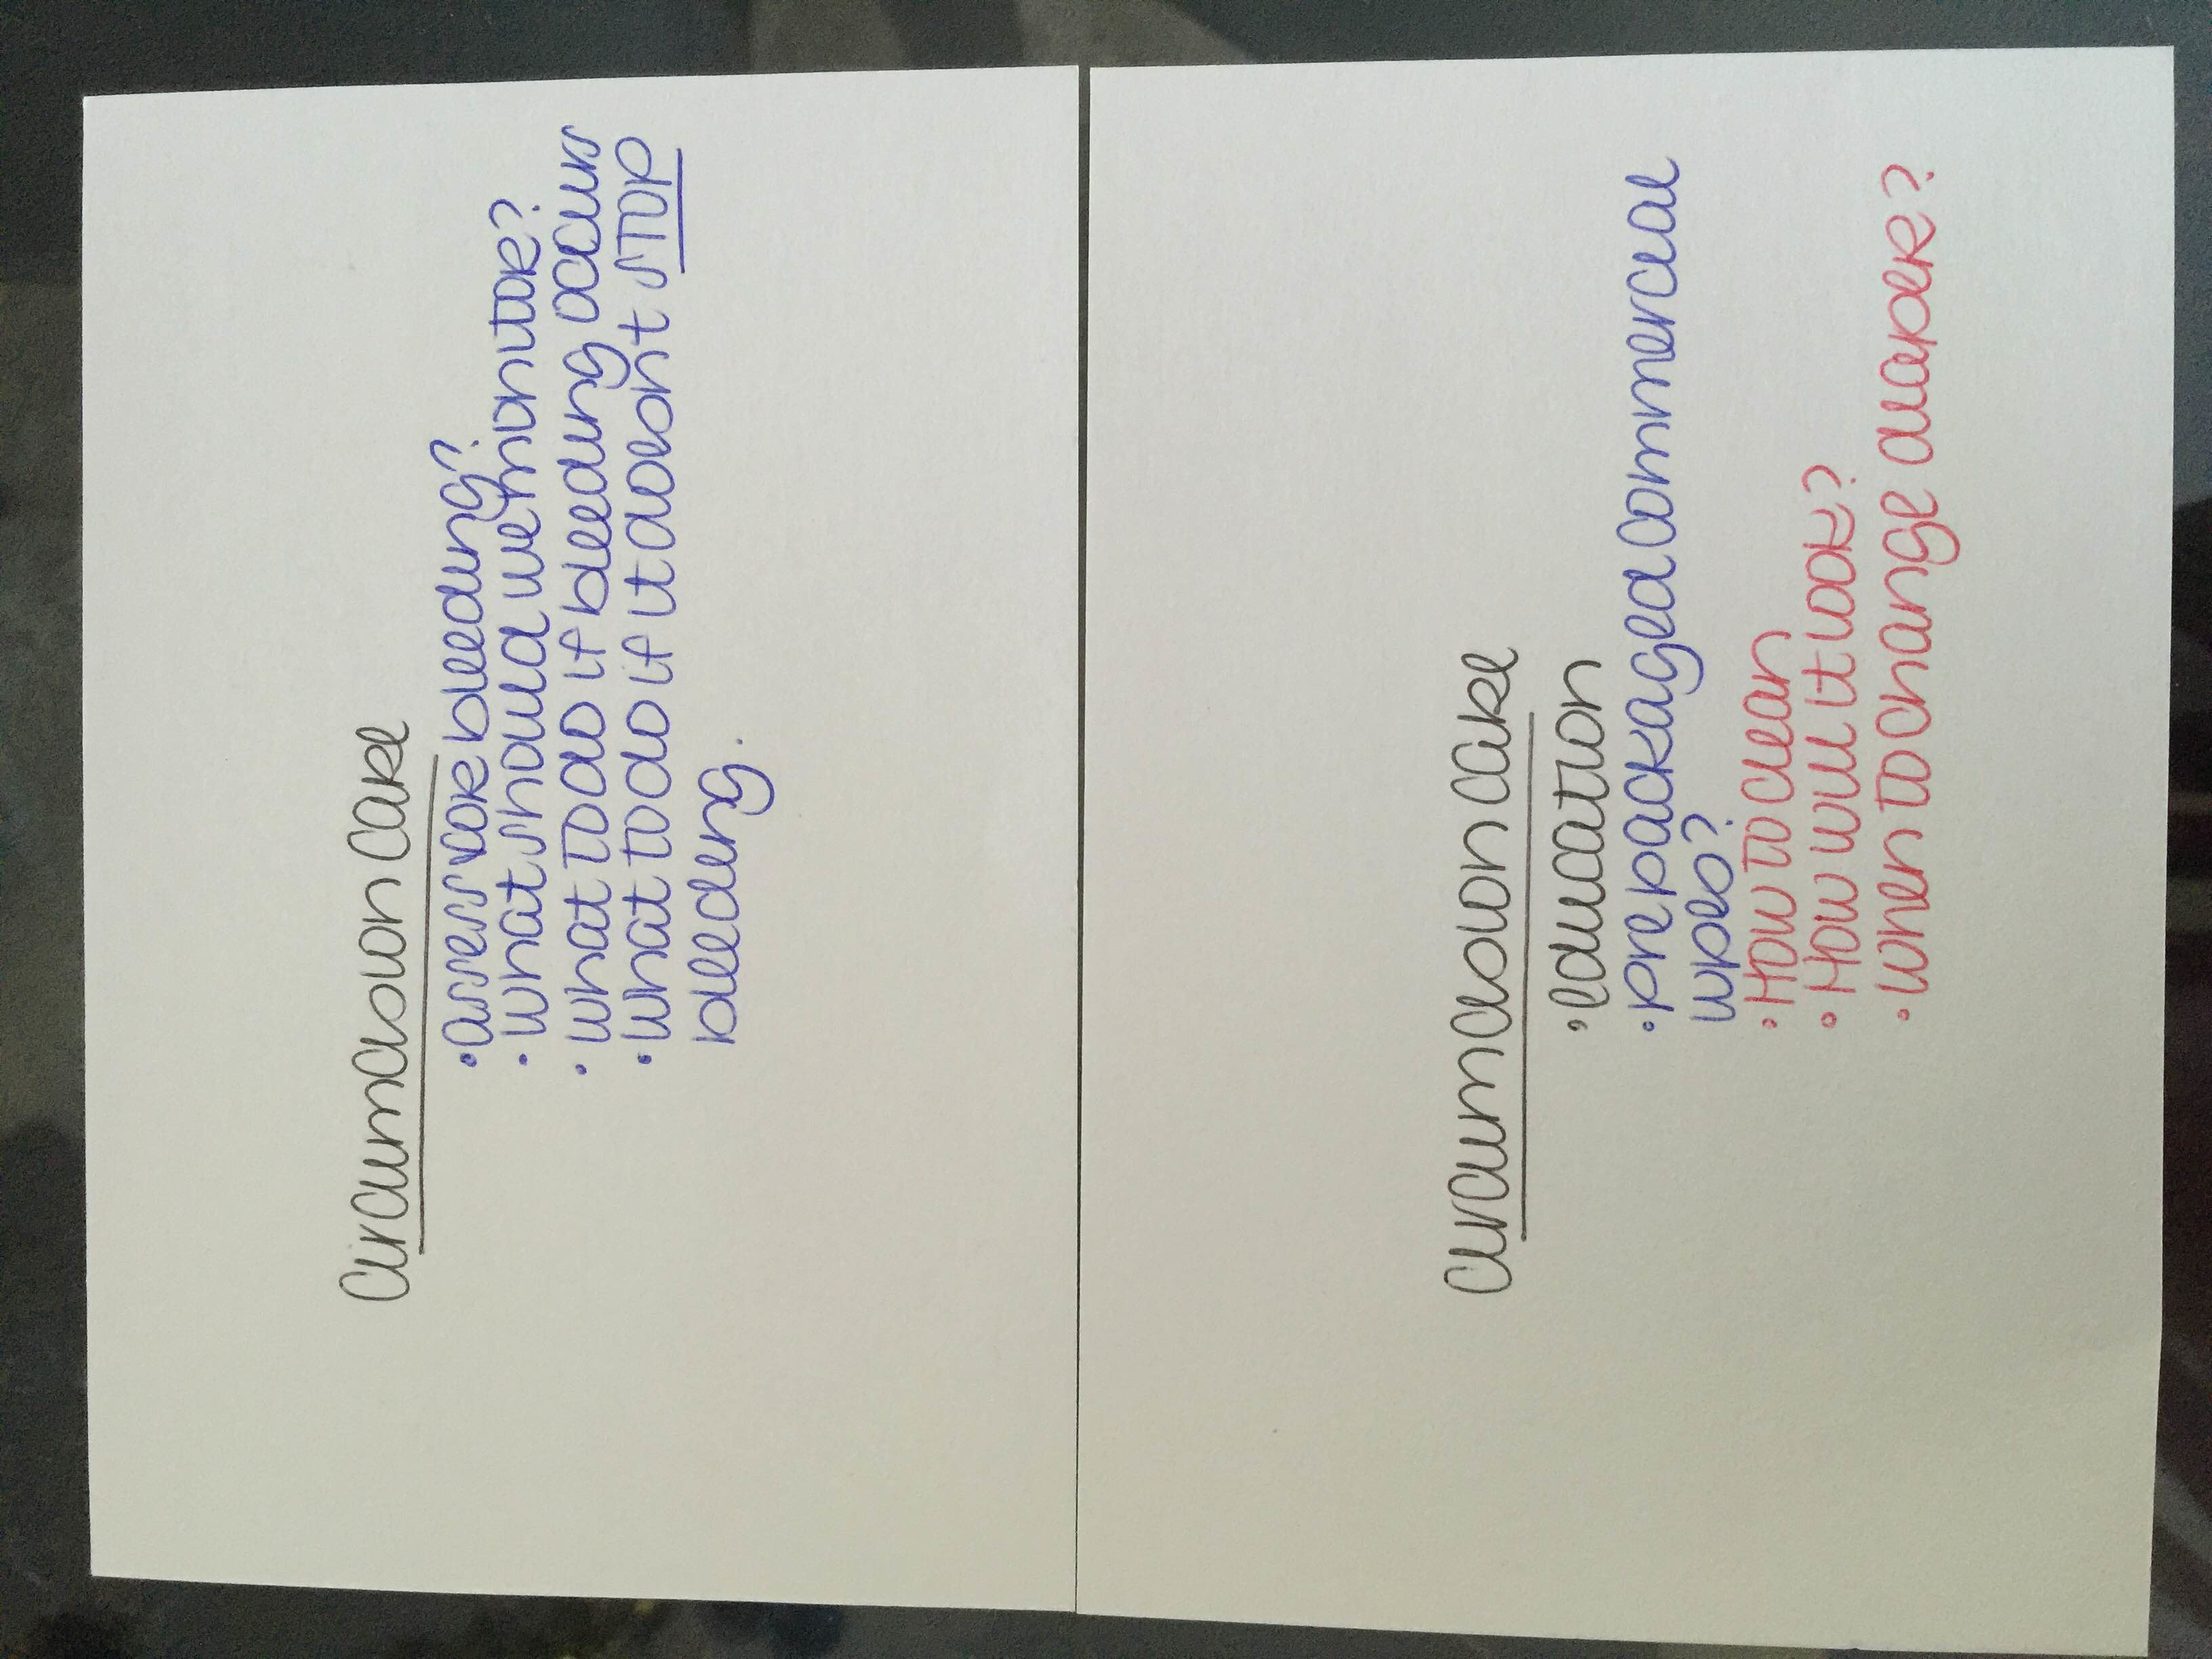 Circumcision care
• assess for bleeding?
• what should we monitor?
• what to do if bleeding occurs
• what to do if it doesnt STOP
bleeding.
circumcision care
• education
• prepackaged commercial
wipes?
• How to clean
• How will it look?
• when to change diaper?